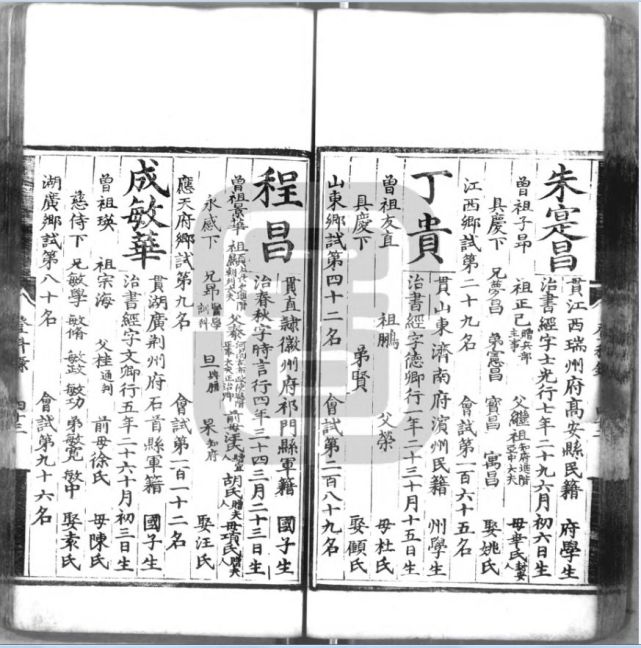 朱寔昌
貫江西瑞州府高安縣民籍 府學生
治書經字士光行七年二十九六月初六日生
曾祖子昂 祖正己贈兵部主事 父繼祖知府進階亞中大夫 母華氏
具慶下 兄夢昌 弟憲昌 寶昌 寓昌 娶姚氏
江西鄉試第二十九名 會試第一百六十五名
丁貴
貫山東濟南府濱州民籍 州學生
治書經字德卿行一年二十三十月十五日生
曾祖友直 祖鵬 父榮 母杜氏
具慶下 弟賢 娶顧氏
山東鄉試第四十二名 會試第二百八十九名
程昌
貫直隸徽州府祁門縣軍籍 國子生
治春秋字時言行四年三十四三月二十三日生
曾祖景華 祖 父泰 前母 胡氏 母
永感下 兄昴醫學訓科 旦典膳 杲知府 娶汪氏
應天府鄉試第九名 會試第一百一十二名
成敏華
貫湖廣荊州府石首縣軍籍 國子生
治書經字文卿行五年二十六十月初三日生
曾祖瑛 祖宗海 父桂通判 前母徐氏 母陳氏
慈侍下 兄敏學 敏脩 敏政 敏功 弟敏寬 敏中 娶袁氏
湖廣鄉試第八十名 會試第九十六名